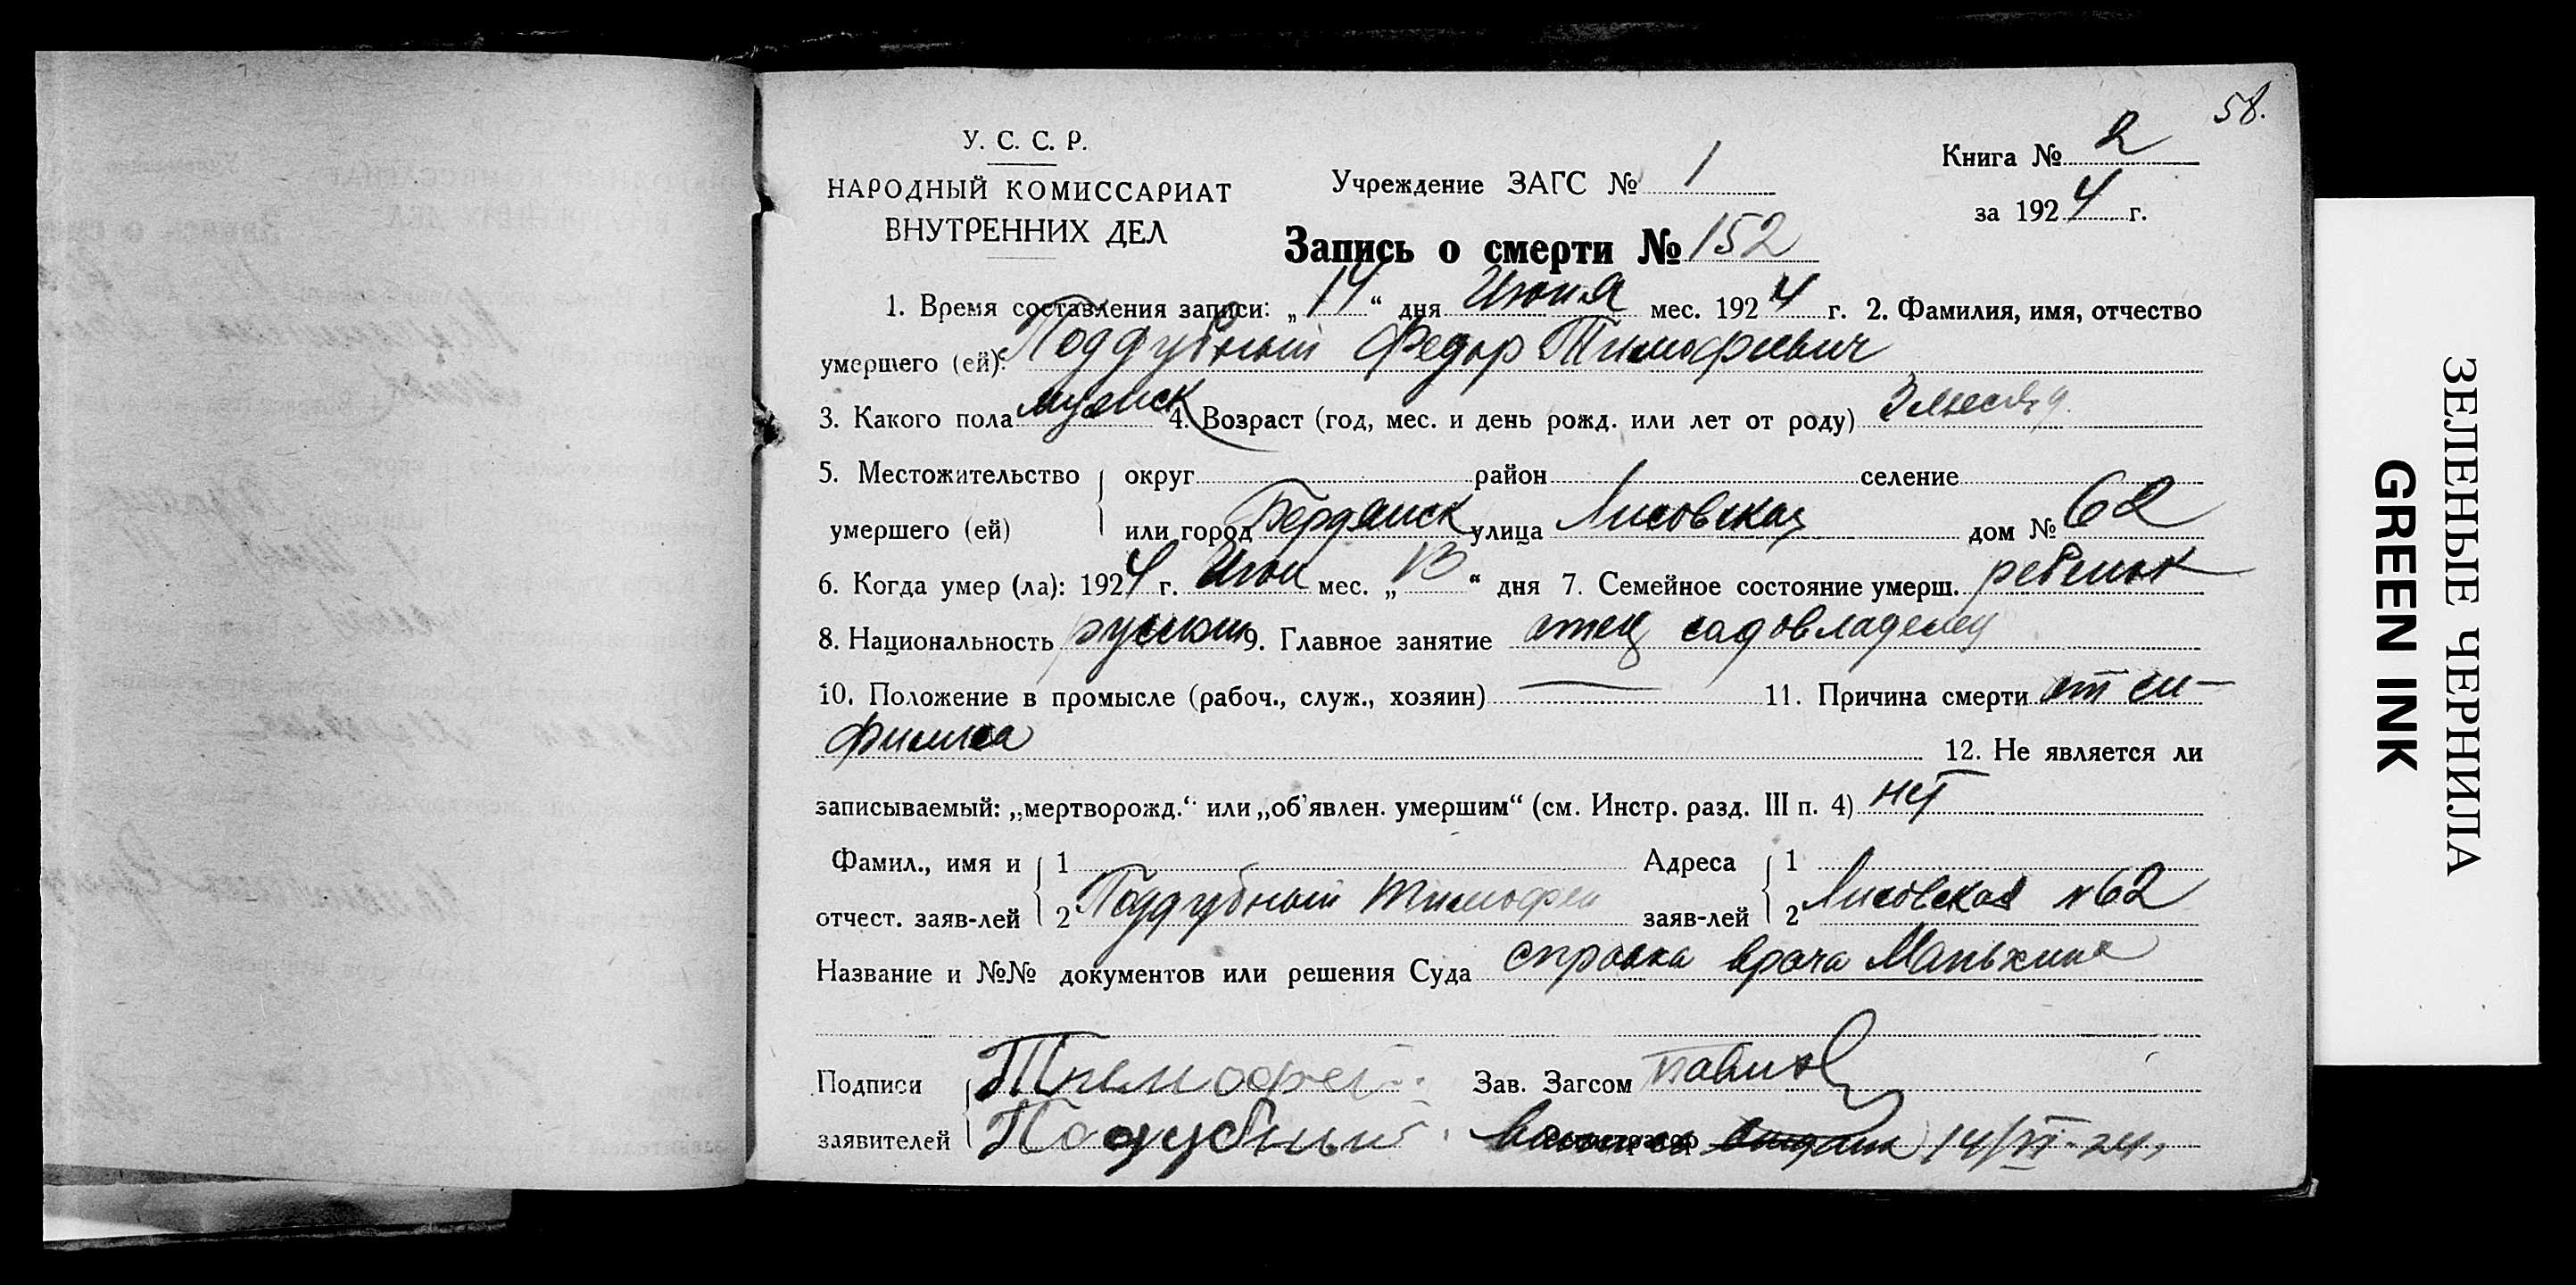 58.
У. С. С. Р.
НАРОДНЫЙ КОМИССАРИАТ
ВНУТРЕННИХ ДЕЛ
Учреждение ЗАГС № 1
Книга № 2
за 1924 г.
Запись о смерти № 152
1. Время составления записи: „14“ дня Июня мес. 1924 г. 2. Фамилия, имя, отчество
умершего (ей): Поддубный Федор Тимофеевич
3. Какого пола мужск 4. Возраст (год, мес. и день рожд. или лет от роду) 3 месяца
5. Местожительство округ район селение
умершего (ей) или город Бердянск улица Лисовская дом № 62
6. Когда умер (ла): 1924 г. Июн мес. „13“ дня 7. Семейное состояние умерш. ребенок
8. Национальность русский 9. Главное занятие отец садовладелец
10. Положение в промысле (рабоч., служ., хозяин) — 11. Причина смерти от си-
филиса 12. Не является ли
записываемый: „мертворожд.“ или „об'явлен. умершим“ (см. Инстр. разд. III п. 4) нет
Фамил., имя и 1 Адреса 1
отчест. заяв-лей 2 Поддубный Тимофей заяв-лей 2 Лисовская №62
Название и №№ документов или решения Суда справка врача
Подписи Тимофей Зав. Загсом
заявителей Подубный 14/VI-24
ЗЕЛЕНЫЕ ЧЕРНИЛА
GREEN INK